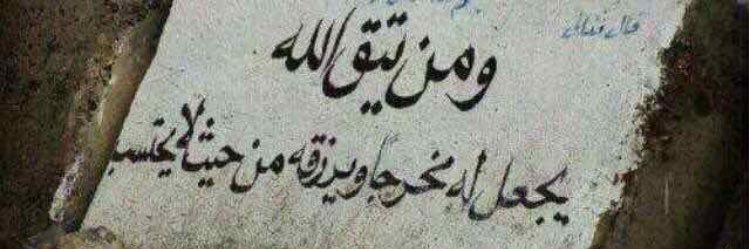 قال تعالى
ومن يتق الله
يجعل له مخرجا ويرزقه من حيث لا يحتسب